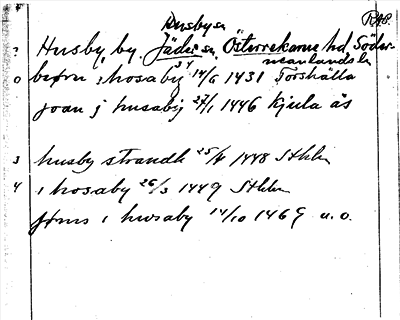 Husby sn
RAP.
? Husby, by, Jäders sn, Österrekarne hd, Söder-
manlands län
0 biørn i hosaby 14/6 1431 Torshälla
34
joan j husaby 27/1 1446 Kjula ås
3 husby strandh 25/4 1448 Sthlm
4 i hosaby 26/3 1449 Sthlm
jøns i husaby 14/10 1469 u.o.